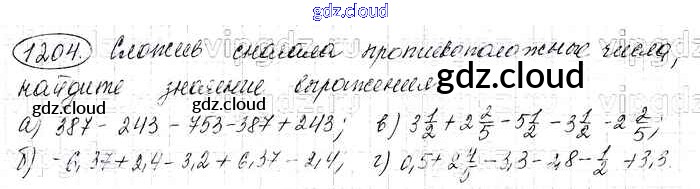 gdz.cloud
1204. Сложив сначала противоположные числа,
найдите значение выражения
gdz.cloud
gdz.cloud gdz.cloud
а) 387 - 243 - 753 - 387 + 243; в) 3 1/2 + 2 2/5 - 5 1/2 - 3 1/2 - 2 2/5;
б) - 6,37 + 2,4 - 3,2 + 6,37 - 2,4; г) 0,5 + 2 4/5 - 3,3 - 2,8 - 1/2 + 3,3.